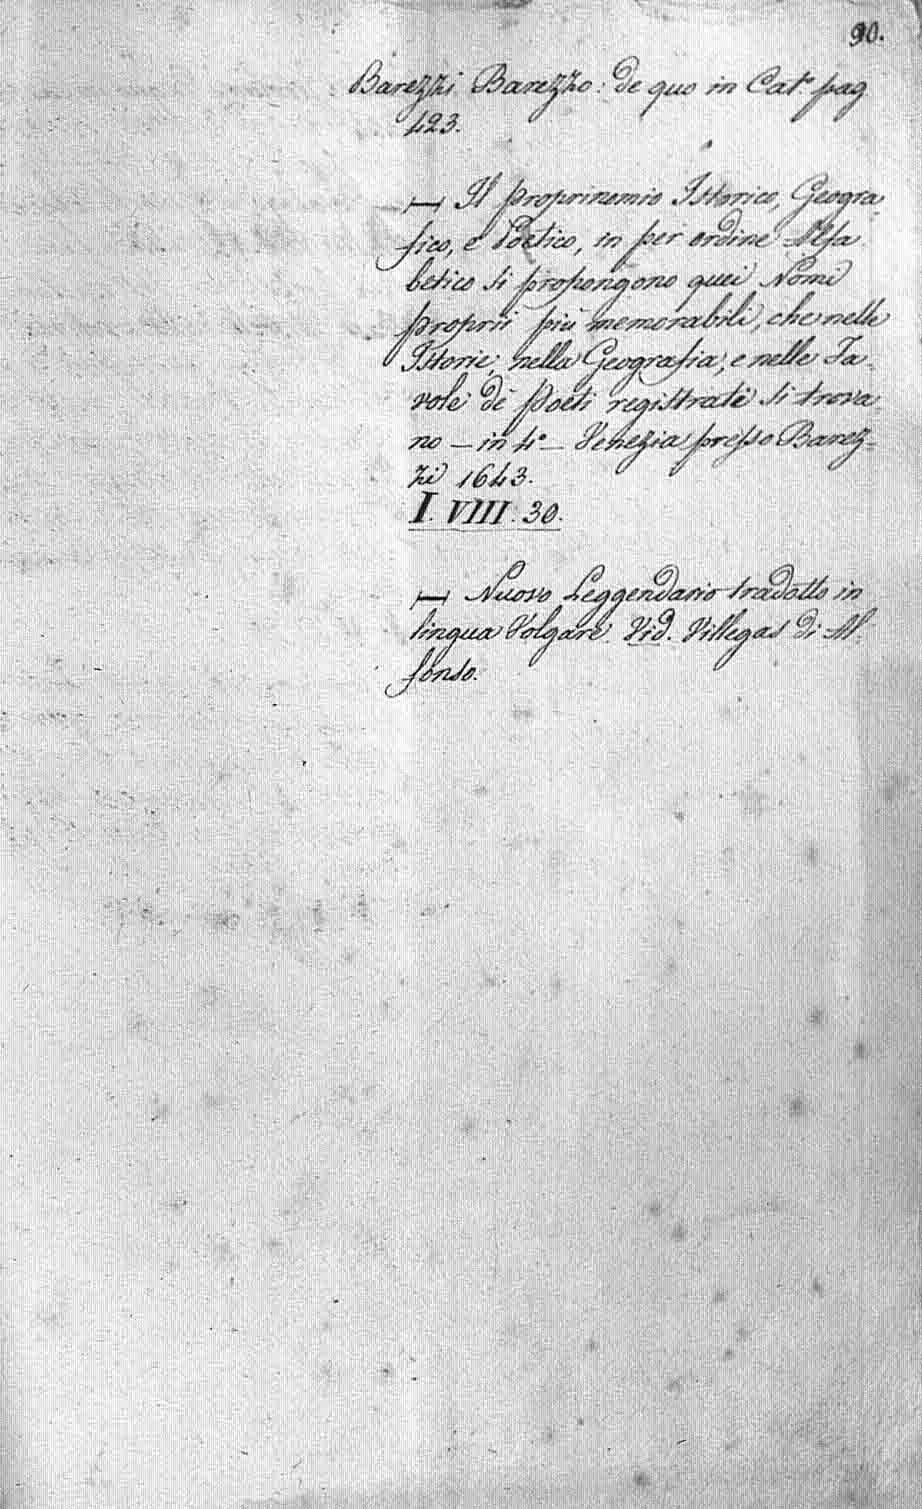 90.
Barezzi Barezzo: de quo in Cat.º pag
423.
— Il Proprinomio Istorico, Geogra-
fico, e Poetico, in per ordine Alfa
betico si propongono quei Nomi
proprii più memorabili, che nelle
Istorie, nella Geografia, e nelle Fa-
vole de Poeti registrate si trova-
no — in 4º — Venezia presso Barez-
zi 1643.
I. VIII. 30.
— Nuovo Leggendario tradotto in
lingua Volgare. Vid. Villegas di Al-
fonso.